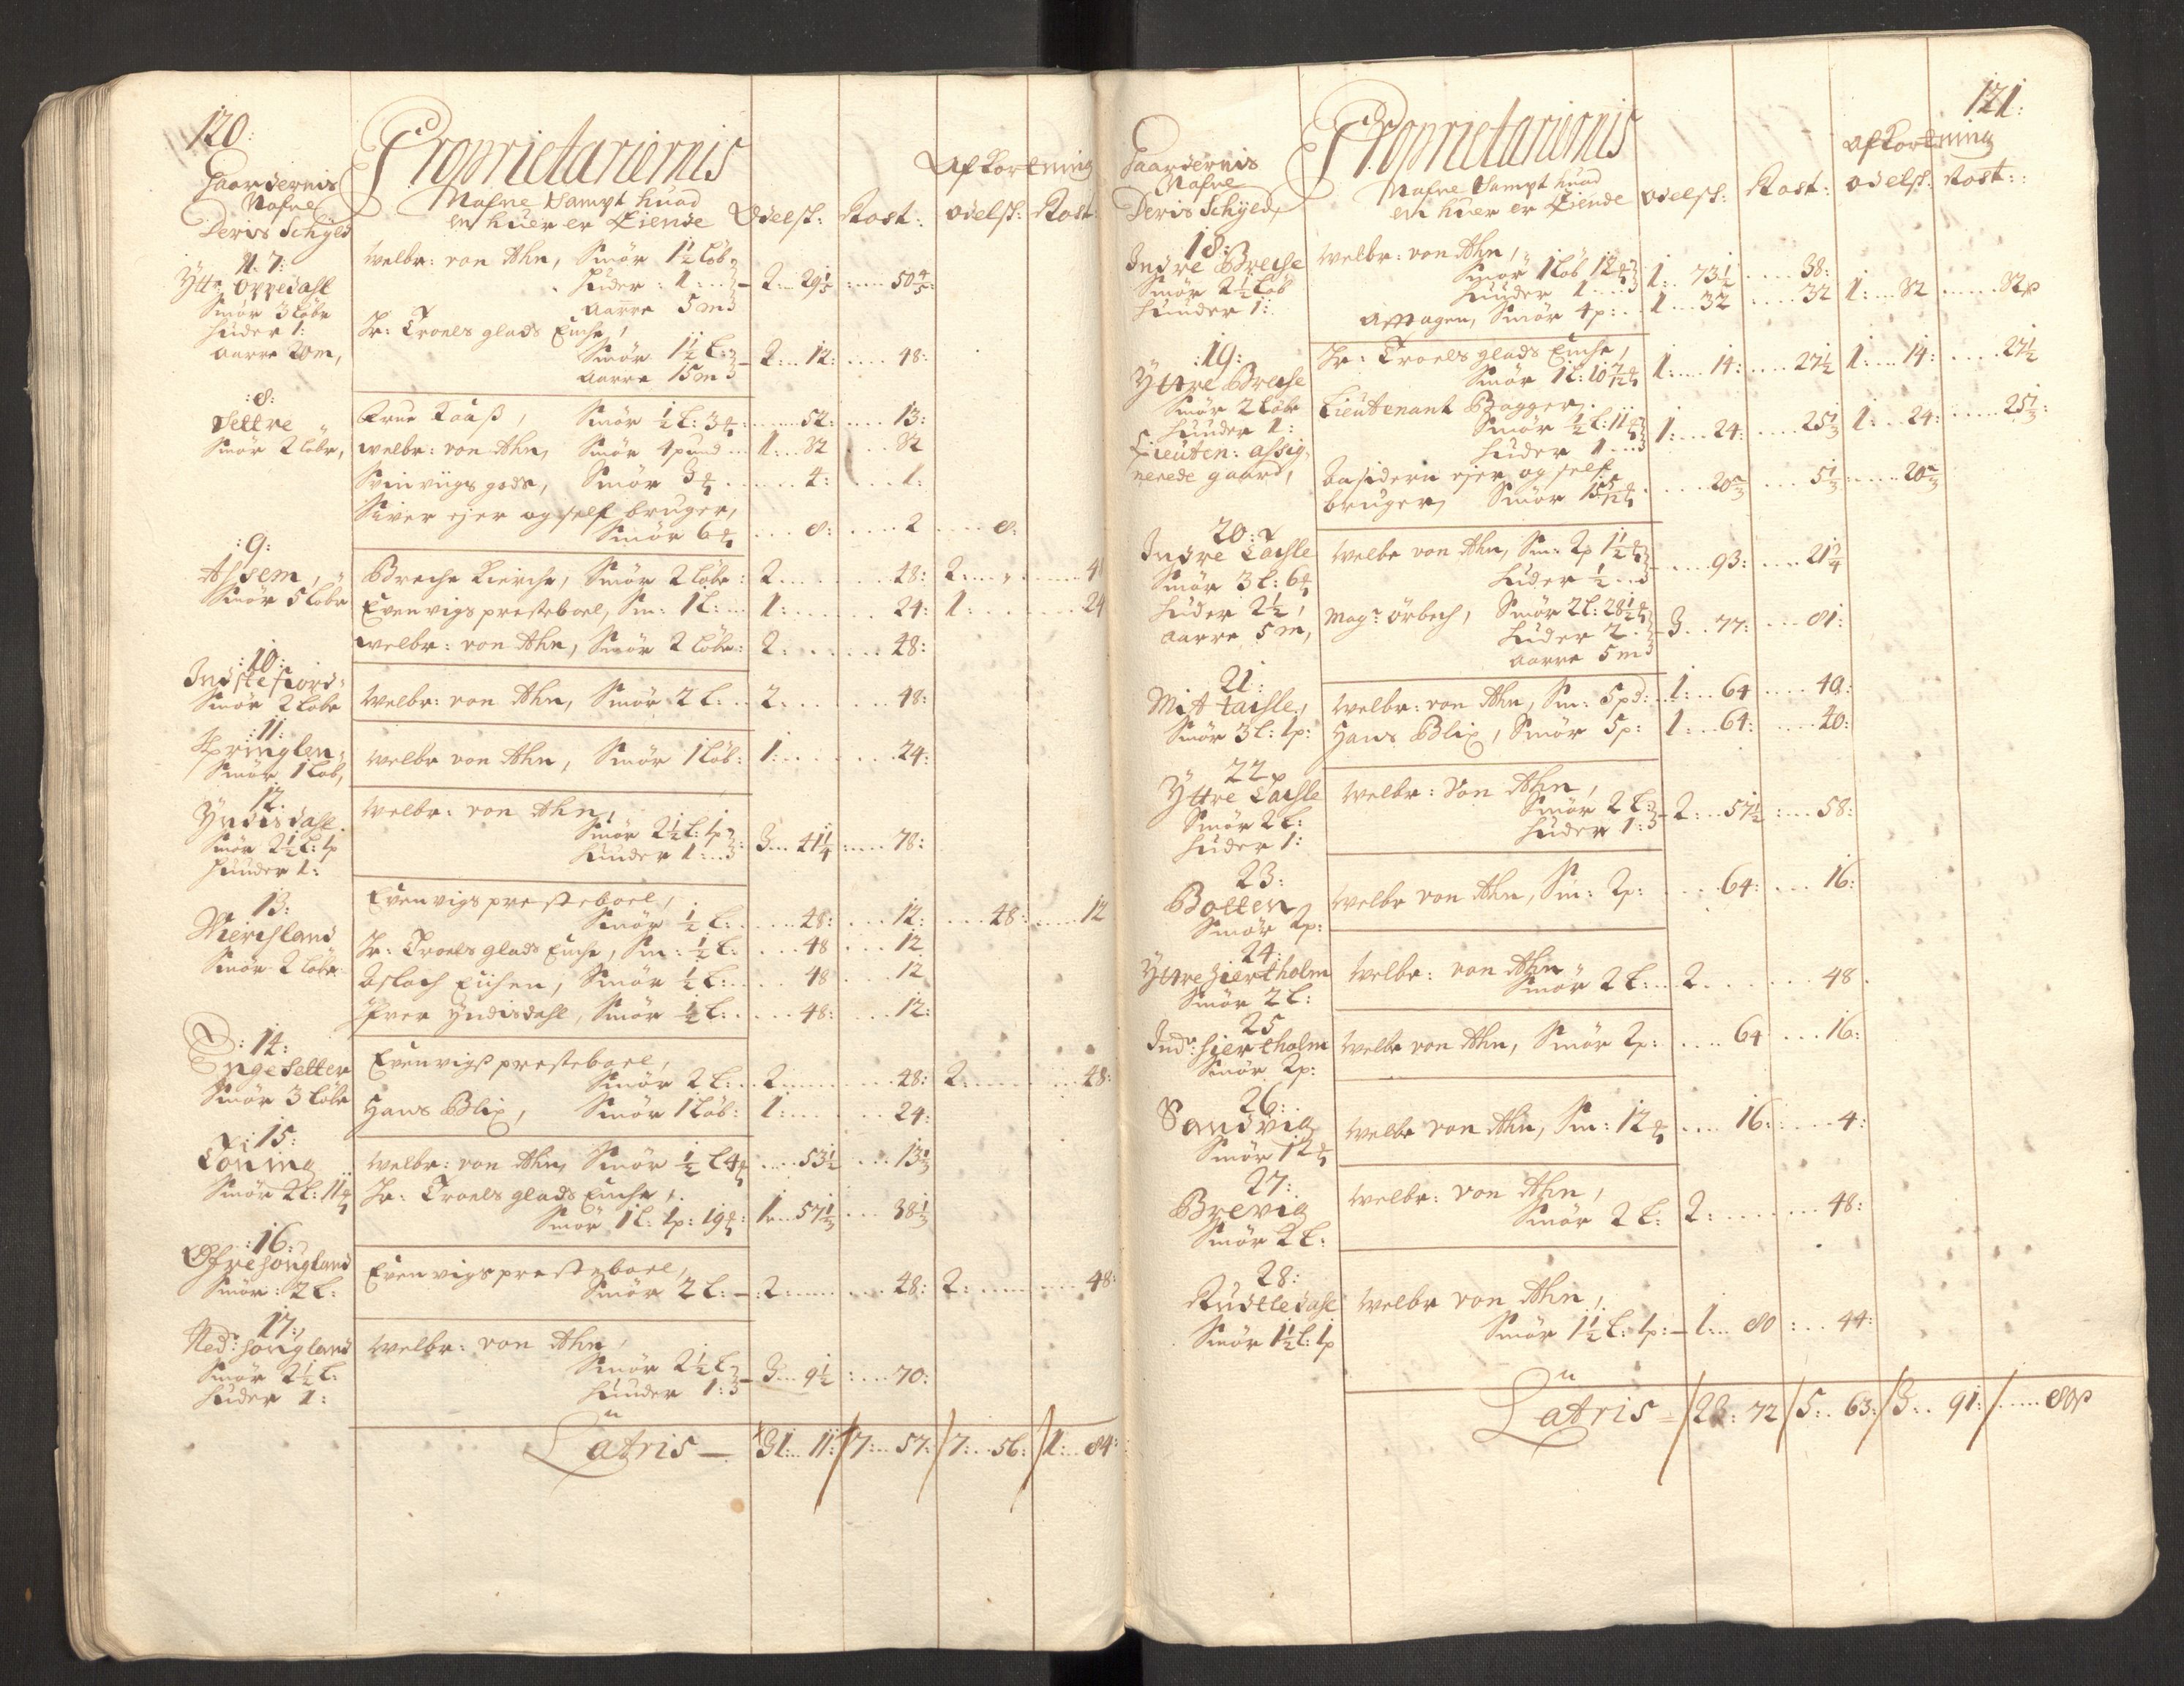 120:
Gaardernis
Nafne
Deris Schyld
Proprietariernis
Nafne Sampt huad
en huer er Eiende
Odelsk: Rost:
Afkortning
odelsk: Rost:
N. 7:
Ytt: oppedahl
Smör 3 Löbe
huder 1:
Aarre 20 m,
welbr: von Ahn, Smör 1½ Löb
huder: 1 2 29⅕ 50⅘
Aarre 5 m
Hr: Troels glads Enche,
Smör 1½ L:
Aarre 15 m 2: 12: 48:
:8:
Settre
Smör 2 Löbe,
Frue Kauß, Smör ½ L: 3 52: 13:
welbr: von Ahn, Smör 4 pund 1: 32 32
Svinviigs gods, Smör 3 4: 1:
Siver ejer og self bruger,
Smör 6 8: 2 8:
:9:
Assem,
Smör 5 Löbe
Breche Kierche, Smör 2 Löbe: 2 48: 2 4
Evenvigs presteboel, Sm: 1 L: 1: 24: 1: 24
welbr: von Ahn, Smör 2 Löbe: 2: 48:
:10:
Indstefiord:
Smör 2 Löbe
welbr: von Ahn, Smör 2 L: 2: 48:
:11:
Springlen:
Smör 1 Löb,
welbr von Ahn, Smör 1 Löb: 1: 24:
12:
Yndisdahl
Smör 2½ L: 1p
Huuder 1:
welbr: von Ahn,
Smör 2½ L: 1p
Huuder 1: 3 41¼ 78:
13:
Mierisland
Smör 2 Löbe
Evenvigs presteboel,
Smör ½ L: 48: 12: 48: 12
Hr: Troels glads Enche, Sm: ½ L: 48 12
Aslach Eiisen, Smör ½ L: 48 12
Iver Yndisdahl, Smör ½ L: 48: 12:
:14:
Ingesetter
Smör 3 Löbe
Evenvigs presteboel,
Smör 2 L: 2 48: 2: 48:
Hans Blix, Smör 1 Löb: 1: 24:
:15:
Töning
Smör 2 L: 11
welbr: von Ahn, Smör ½ L 4 53⅓ 13⅓
Hr: Troels glads Enche,
Smör 1 L: 1p: 19: 1 57⅓ 38⅓
:16:
Öfresongland
Smör: 2 L:
Evenvigs presteboel,
Smör 2 L: 2: 48: 2: 48:
17:
Ned: songland
Smör 2½ L:
huder 1:
welbr: von Ahn,
Smör 2½ L
Huuder 1: 3 9½ 70:
Latris 31 11: 7 57: 7: 56: 1 84:
121:
Gaardernis
Nafne
Deris Schyld,
Proprietariernis
Nafne Sampt huad
en huer er Eiende
odelsk: Rost:
Afkortning
odelsk: Rost:
18:
Indre Breche
Smör 2½ Löb
Huuder 1:
welbr: von Ahn,
Smör 1 Löb 12
Huuder 1 1: 73½ 38:
Apostagen, Smör 4p: 1 32 32 1: 32 32
:19:
Yttre Breche
Smör 2 Löbe
Huuder 1:
Lieuten: assig
nerede gaard,
Hr: Troels glads Enche,
Smör 1 L: 10 1: 14: 27½ 1: 14: 27½
Lieutenant Bagger,
Smör ½ L: 11
huder 1 1: 24: 25⅓ 1: 24: 25⅓:
Besidern ejer og self
bruger, Smör 15 20⅔ 5⅓ 20⅔
20:
Indre Tachle
Smör 3 L: 6
huder 2½,
Aarre 5 m,
welbr von Ahn, Sm: 2p 1½
huder ½ 93: 21¼
Mag: örbech, Smör 2 L: 28½
huder 2: 3 77: 81:
Aarre 5 m
21:
Mit tachle,
Smör 3 L: 1p:
welbr: von Ahn, Sm: 5pd: 1: 64 40:
Hans Blix, Smör 5p: 1 64: 40:
22
Yttre Tachle
Smör 2 L:
huder 1:
welbr: Von Ahn,
Smör 2 L:
huder 1: 2 57½ 58:
23:
Botten
Smör 2p:
welbr von Ahn, Sm: 2p: 64: 16:
24:
Yttre hiertholm
Smör 2 L:
welbr: von Ahn
Smör 2 L: 2 48
25
Ind: hiertholm
Smör 2p:
welbr von Ahn, Smör 2p: 64 16:
26:
Sandvig
Smör 12
welbr von Ahn, Sm: 12 16: 4:
27:
Brevig
Smör 2 L:
welbr: von Ahn,
Smör 2 L: 2: 48:
28:
Rudtledahl
Smör 1½ L: 1p
welbr von Ahn,
Smör 1½ L: 1p: 1 80 44:
Latris 22: 72 5: 63: 3: 91: 80